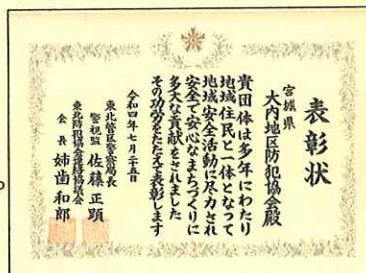 表彰状
宮城県
大内地区防犯協会殿
貴団体は多年にわたり
地域住民と一体となって
地域安全活動に尽力され
安全で安心なまちづくりに
多大な貢献をされました
その功労をたたえ表彰します
令和四年七月二十五日
東北管区警察局長
警視監 佐藤正顕
東北防犯協会連絡協議会
会長 姉歯和郎